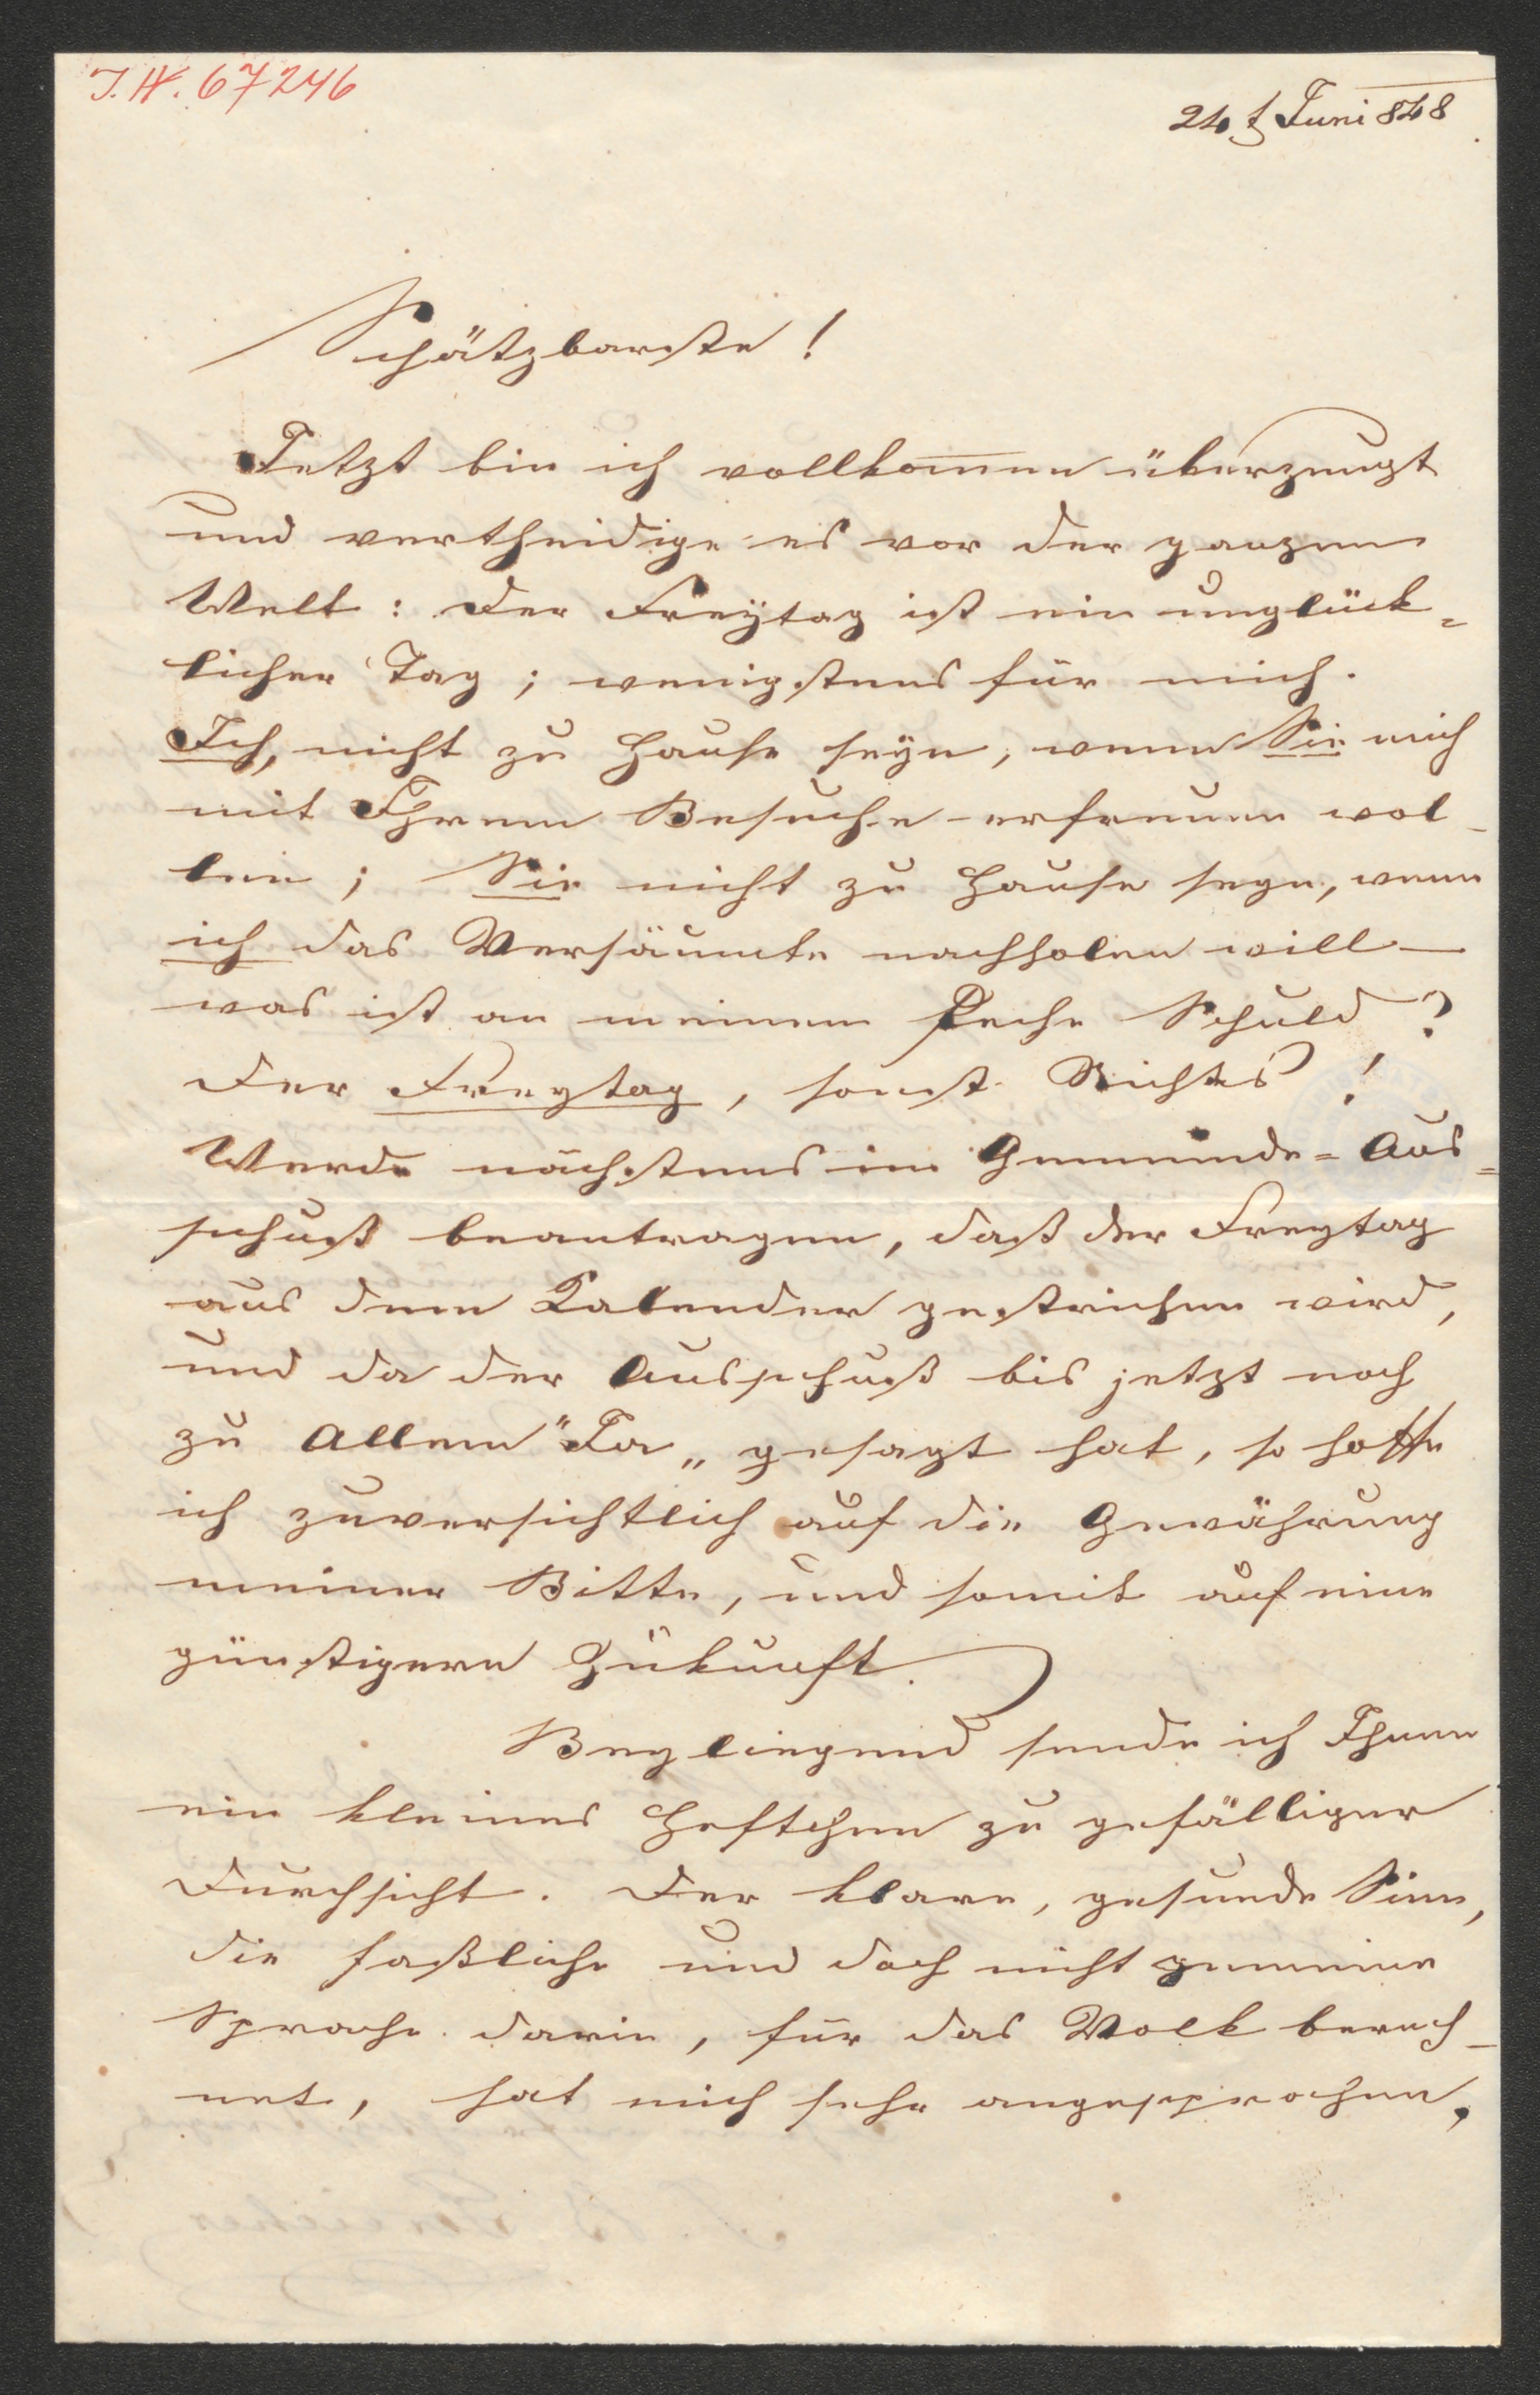 J.N. 67246
24t Juni 848
Schätzbarste!
Jetzt bin ich vollkom̅en überzeugt
und vertheidige es vor der ganzen
Welt: der Freÿtag ist ein unglück=
licher Tag; wenigstens für mich.
Ich, nicht zu Hause seyn, wenn Sie mich
mit Ihrem Besuche erfreuen wol-
len; Sie nicht zu Hause seyn, wenn
ich das Versäumte nachholen will —
was ist an meinem Peche Schuld?
der Freytag, sonst Nichts!
Werde nächstens im Gemeinde=Aus=
schuß beantragen, daß der Freytag
aus dem Kalender gestrichen wird,
und da der Ausschuß bis jetzt noch
zu Allem "Ja„ gesagt hat, so hoffe
ich zuversichtlich auf die Gewährung
meiner Bitte, und somit auf eine
günstigere Zukunft.
Beyliegend sende ich Ihnen
ein kleines Heftchen zu gefälliger
Durchsicht. Der klare, gesunde Sinn,
die faßliche und doch nicht gemeine
Sprache darin, für das Volk berech-
net, hat mich sehr angesprochen,